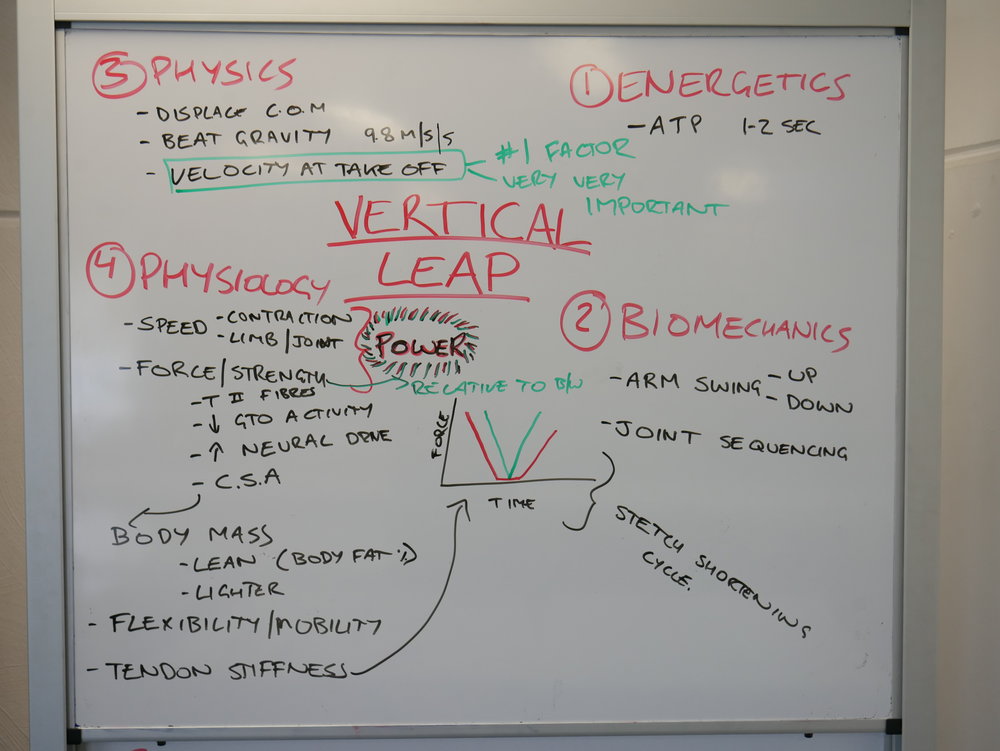 ③ PHYSICS
- DISPLACE C.O.M
- BEAT GRAVITY 9.8 M/S/S
- VELOCITY AT TAKE OFF
#1 FACTOR
VERY VERY
IMPORTANT
① ENERGETICS
- ATP 1-2 SEC
VERTICAL
LEAP
④ PHYSIOLOGY
- SPEED - CONTRACTION
- LIMB/JOINT
POWER
- FORCE/STRENGTH
RELATIVE TO B/W
- T II FIBRES
- ↓ GTO ACTIVITY
- ↑ NEURAL DRIVE
- C.S.A
BODY MASS
- LEAN (BODY FAT %)
- LIGHTER
- FLEXIBILITY/MOBILITY
- TENDON STIFFNESS
FORCE
TIME
② BIOMECHANICS
- ARM SWING - UP
- DOWN
- JOINT SEQUENCING
STETCH SHORTENING
CYCLE.